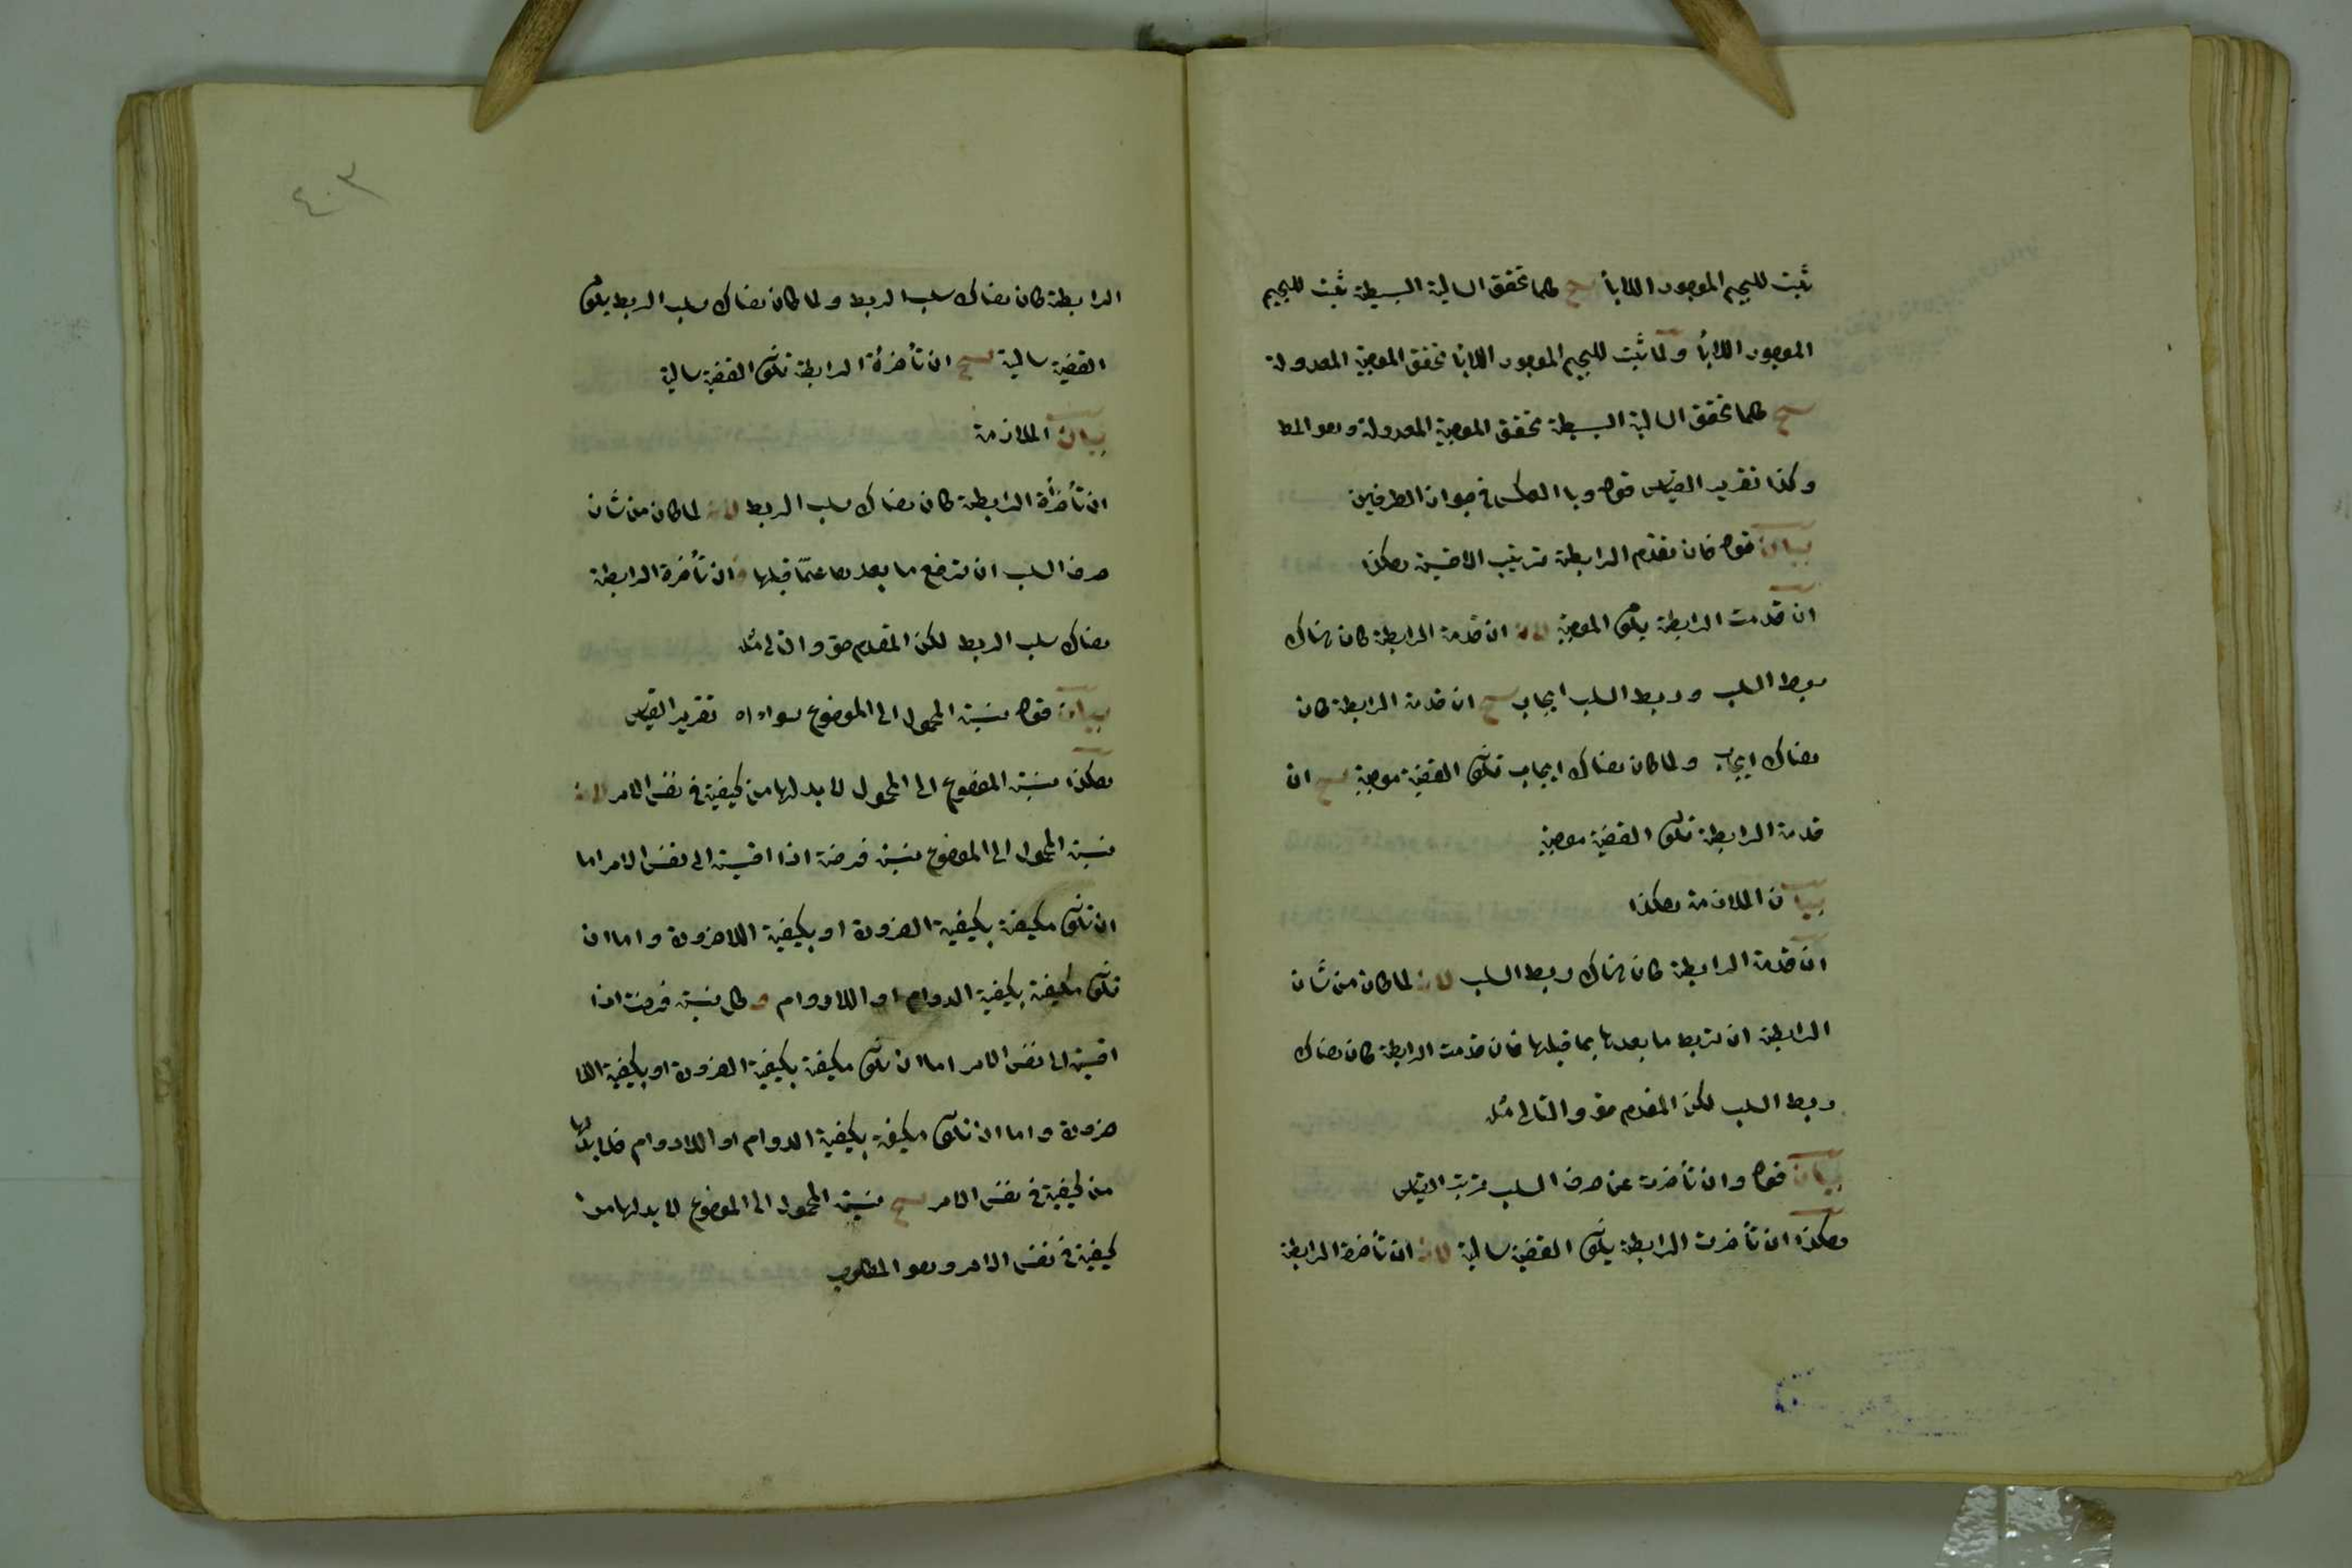 ثبت للجيم الموجود اللابأ ينتج كلما تحقق السالبة البسيطة ثبت للجيم
الموجود اللابأ ولما ثبت للجيم الموجود اللابأ تحقق الموجبة المعدولة
ينتج كلما تحقق السالبة البسيطة تحقق الموجبة المعدولة وهو المط
وكذا تقرير القياس قوله وبا العكس في جواز الطرفين
بيان قوله فان تقدم الرابطة ترتيب الاقيسة هكذا
ان قدمت الرابطة يكون الموجبة لانه ان قدمة الرابطة كان هناك
ربط السلب وربط السلب ايجاب ينتج ان قدمة الرابطة كان
هناك ايجاب ولما كان هناك ايجاب تكون القضية موجبة ينتج ان
قدمة الرابطة تكون القضية موجبة
بيان الملازمة هكذا
ان قدمة الرابطة كان هناك ربط السلب لانه لما كان من شان
الرابطة ان تربط ما بعدها بما قبلها فان قدمت الرابطة كان هناك
ربط السلب لكن المقدم حق والتالى مثله
بيان قوله وان تأخرت عن حرف السلب ترتيب القياس
هكذا ان تأخرت الرابطة يكون القضية سالبة لانه ان تأخرة الرابطة
٤٠٣
الرابطة كان هناك سلب الربط ولما كان هناك سلب الربط يكون
القضية سالبة ينتج ان تأخرة الرابطة تكون القضية سالبة
بيان الملازمة
ان تأخرة الرابطة كان هناك سلب الربط لانه لما كان من شان
حرف السلب ان ترفع ما بعدها عمّا قبلها وان تأخرة الرابطة
هناك سلب الربط لكن المقدم حق والتالى مثله
بيان قوله نسبة المحمول الى الموضوع سواء اه تقرير القياس
هكذا نسبة الموضوع الى المحمول لا بد لها من كيفية في نفس الامر لانه
نسبة المحمول الى الموضوع نسبة فرضة اذا اقيسة الى نفس الامر اما
ان تكون مكيفة بكيفية الضرورة او بكيفية اللاضرورة واما ان
تكون مكيفة بكيفية الدوام او اللادوام وكل نسبة فرضت اذا
اقيسة الى نفس الامر اما ان تكون مكيفة بكيفية الضرورة او بكيفية اللا
ضرورة واما ان تكون مكيفة بكيفية الدوام او اللادوام فلا بد لها
من كيفية في نفس الامر ينتج نسبة المحمول الى الموضوع لا بد لها من
كيفية في نفس الامر وهو المطلوب